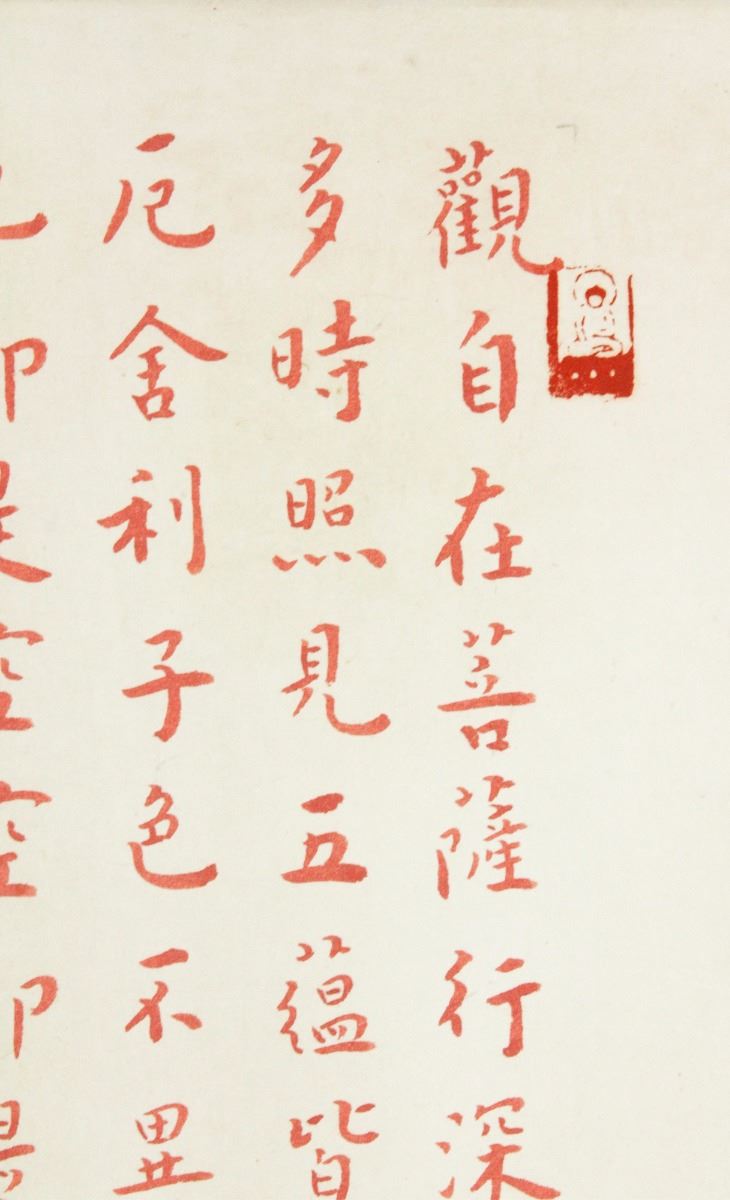 觀自在菩薩行深
多時照見五蘊皆
厄舍利子色不異
色即是空空即是